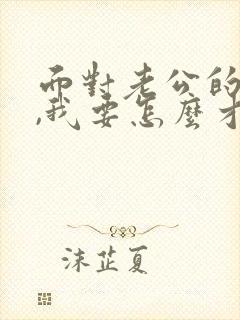 而對老公的
,我要怎麼才
沫芷夏